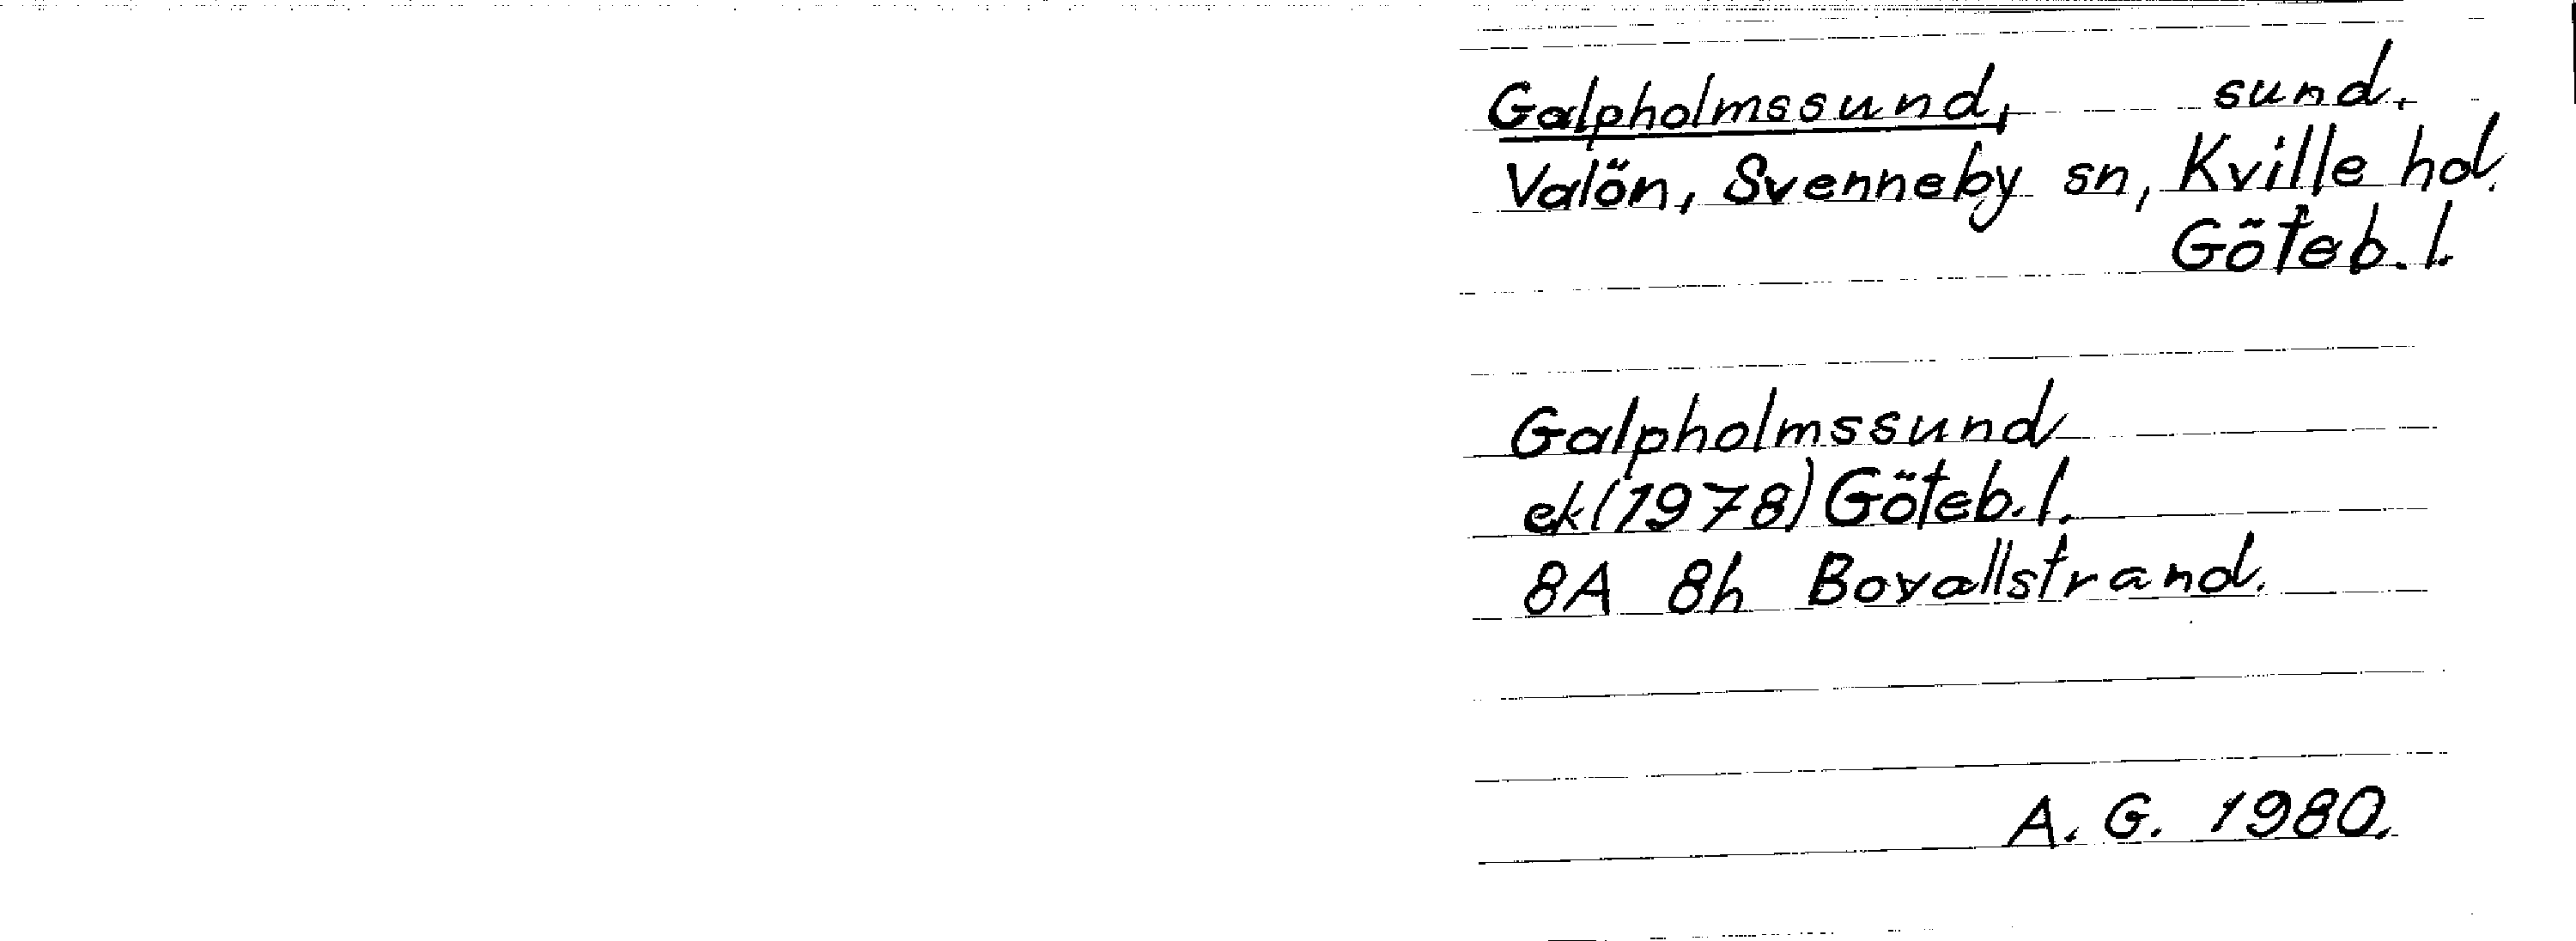 Galpholmssund, sund.
Valön, Svenneby sn, Kville hd.
Göteb. l.
Galpholmssund
ek (1978) Göteb. l.
8A 8h Bovallstrand.
A. G. 1980.